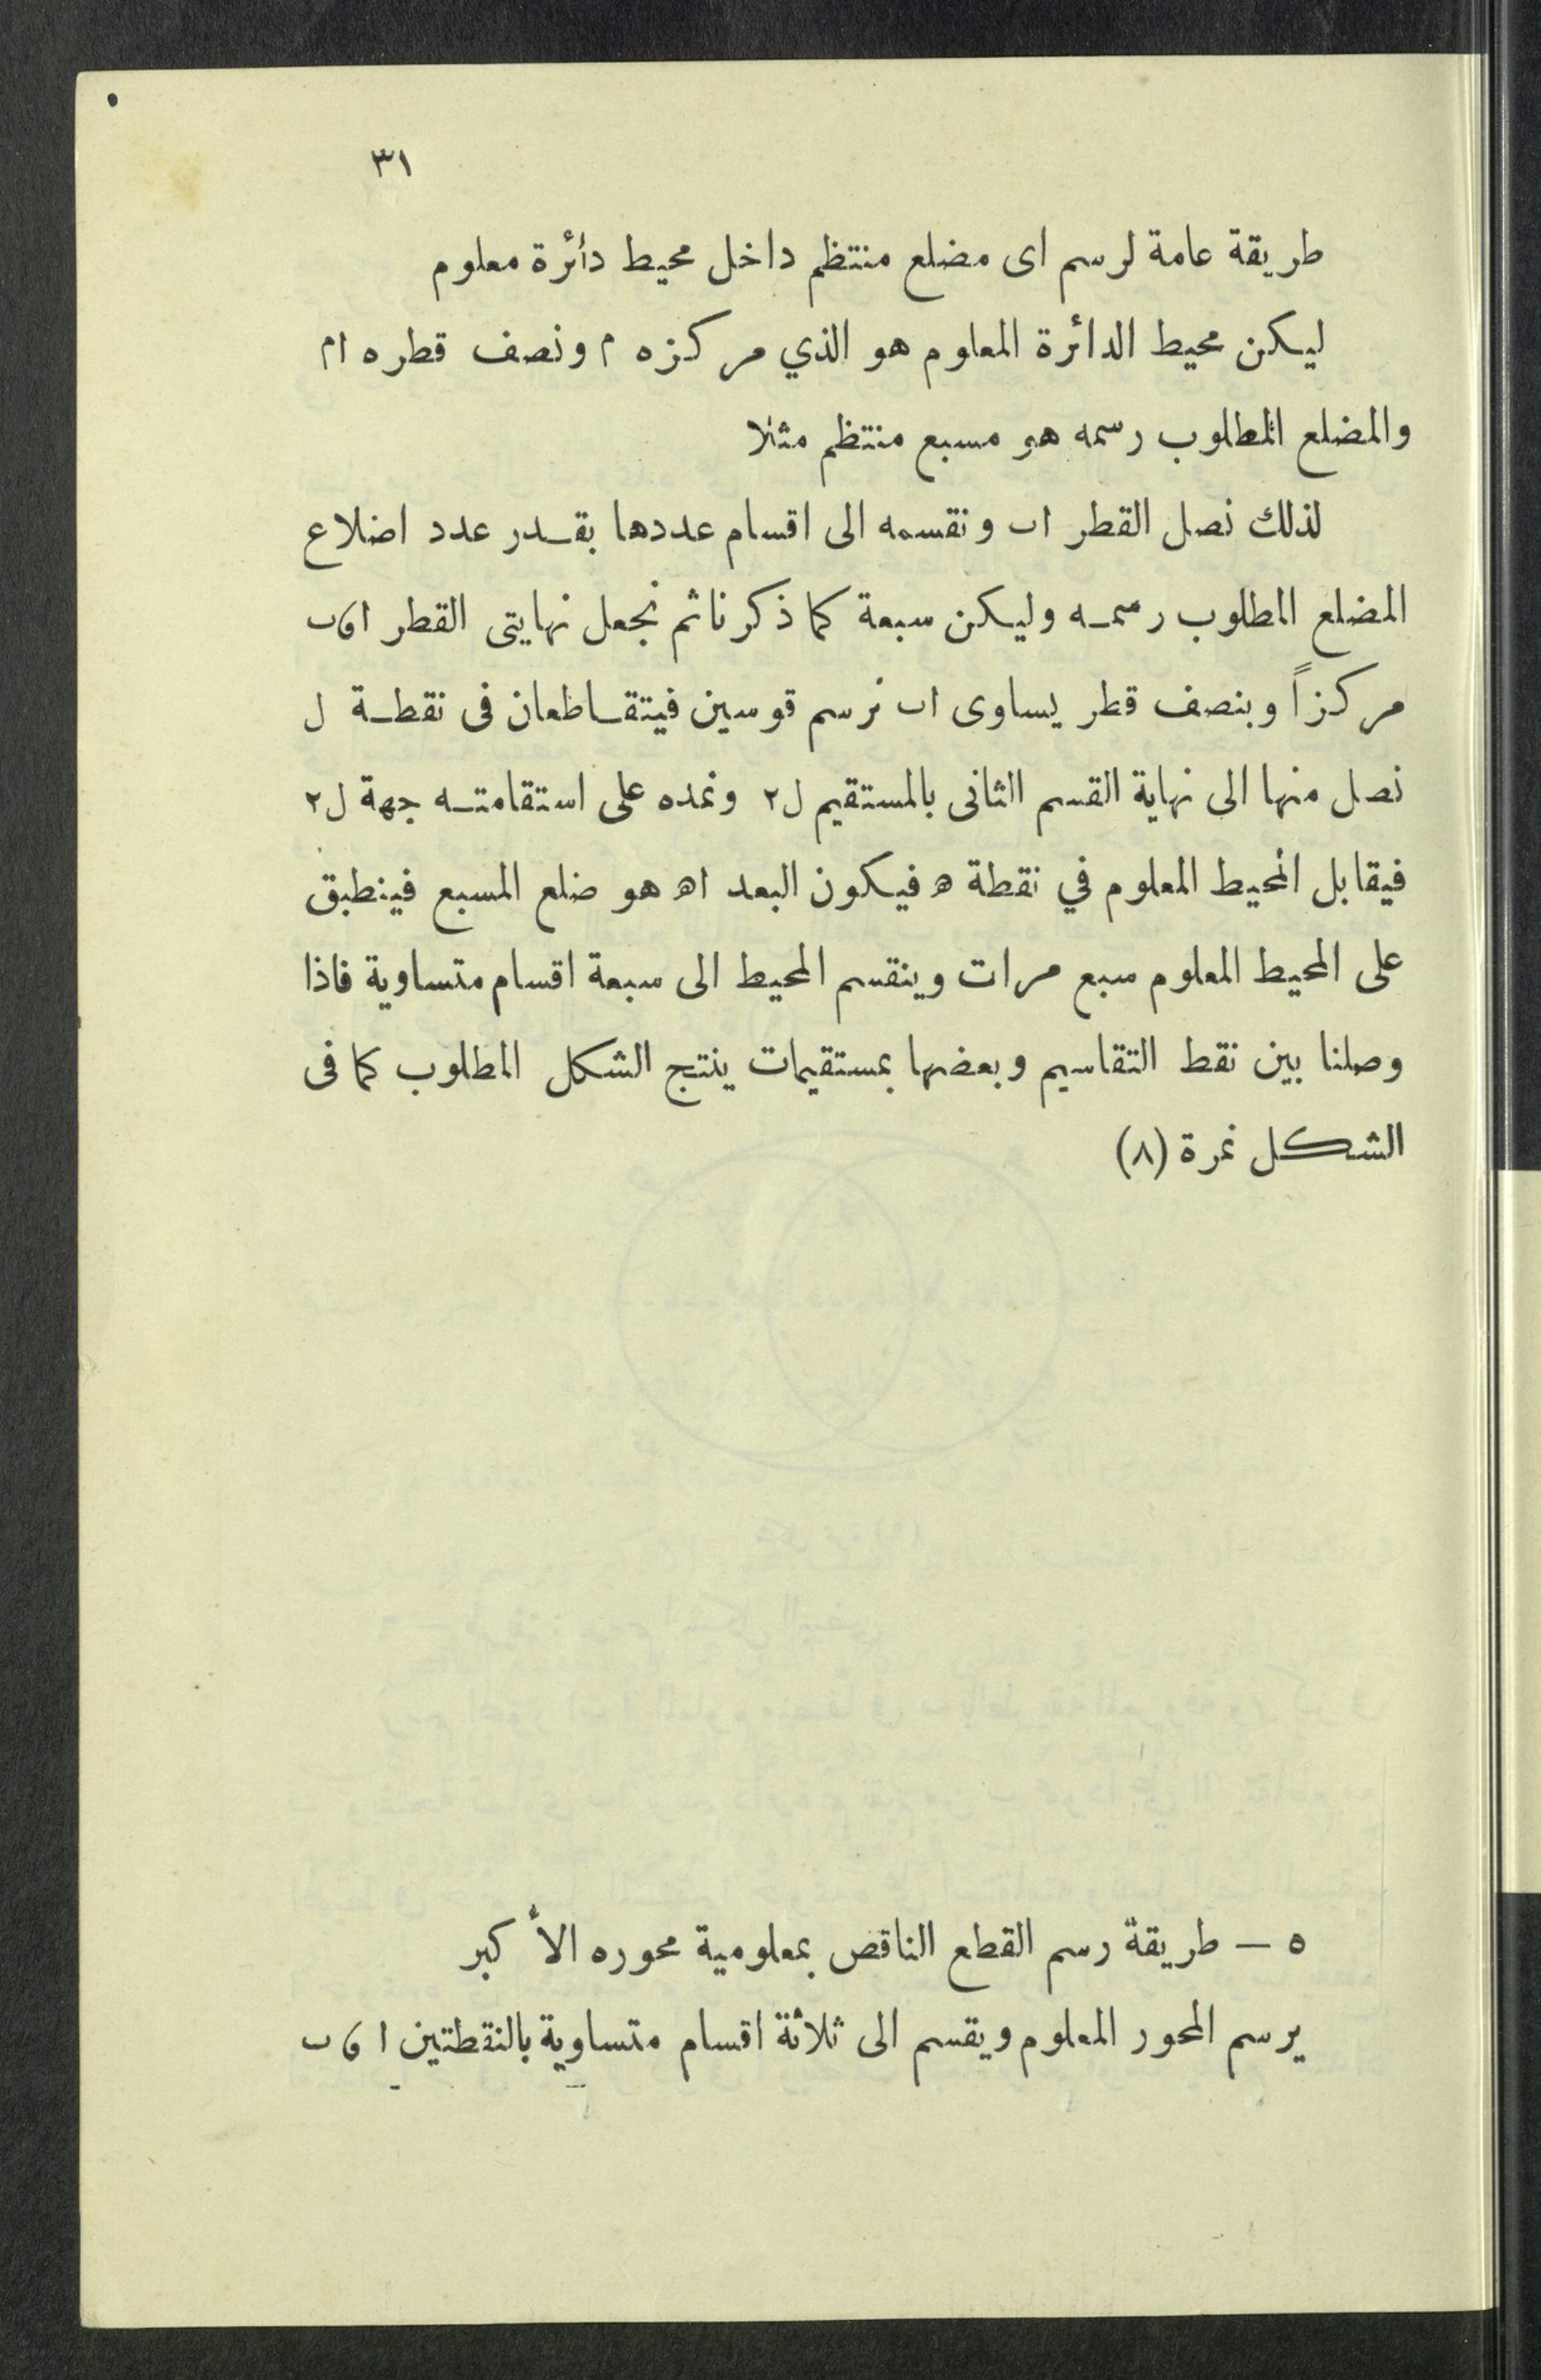 ٣١
طريقة عامة لرسم اى مضلع منتظم داخل محيط دأئرة معلوم
ليكن محيط الدائرة المعلوم هو الذي مركزه م ونصف قطره ام
والمضلع المطلوب رسمه هو مسبع منتظم مثلا
لذلك نصل القطر اب ونقسمه الى اقسام عددها بقدر عدد اضلاع
المضلع المطلوب رسمه وليكن سبعة كما ذكرنا ثم نجعل نهايتى القطر ا و ب
مركزاً وبنصف قطر يساوى اب نرسم قوسين فيتقاطعان فى نقطة ل
نصل منها الى نهاية القسم الثانى بالمستقيم ل٢ ونمده على استقامته جهة ل٢
فيقابل المحيط المعلوم في نقطة ه فيكون البعد اه هو ضلع المسبع فينطبق
على المحيط المعلوم سبع مرات وينقسم المحيط الى سبعة اقسام متساوية فاذا
وصلنا بين نقط التقاسيم وبعضها بمستقيمات ينتج الشكل المطلوب كما فى
الشكل نمرة (٨)
٥ — طريقة رسم القطع الناقص بمعلومية محوره الأكبر
يرسم المحور المعلوم ويقسم الى ثلاثة اقسام متساوية بالنقطتين ا و ب